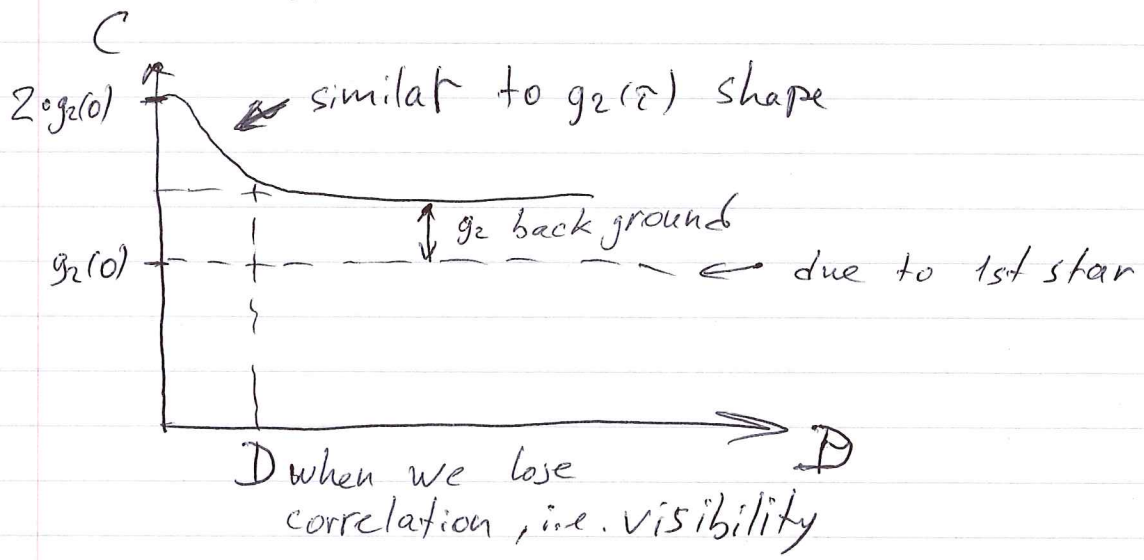 C
2·g₂(0)
similar to g₂(τ) shape
g₂ back ground
g₂(0)
due to 1st star
D
D when we lose
correlation, i.e. visibility